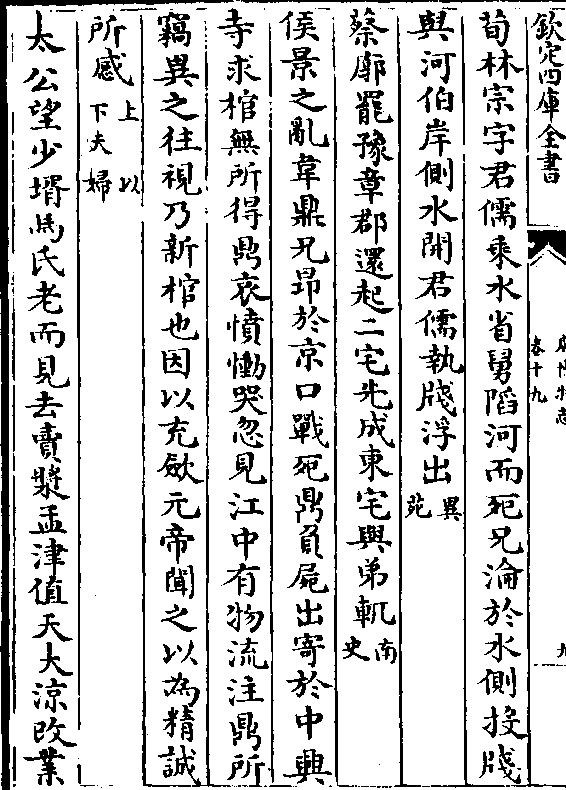 欽定四庫全書
卷十九
荀林宗字君儒乘水省舅䧟河而死兄淪於水側投牋
與河伯岸側水開君儒執牋浮出異苑
蔡廓罷豫章郡還起二宅先成東宅與弟軌南史
侯景之亂韋鼎兄昂於京口戰死鼎負屍出寄於中興
寺求棺無所得鼎哀憤慟哭忽見江中有物流注鼎所
竊異之往視乃新棺也因以充歛元帝聞之以為精誠
所感上以下夫婦
太公望少壻馬氏老而見去賣漿孟津值天大涼改業